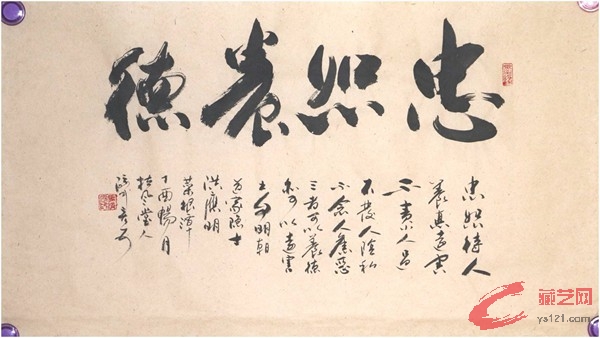 忠恕養德
忠恕待人
養德遠害
不責小人過
不發人陰私
不念人舊惡
三者可以養德
亦可以遠害
明朝
隱士
洪應明
菜根譚
丁酉暢月
藏艺网
ys121.com